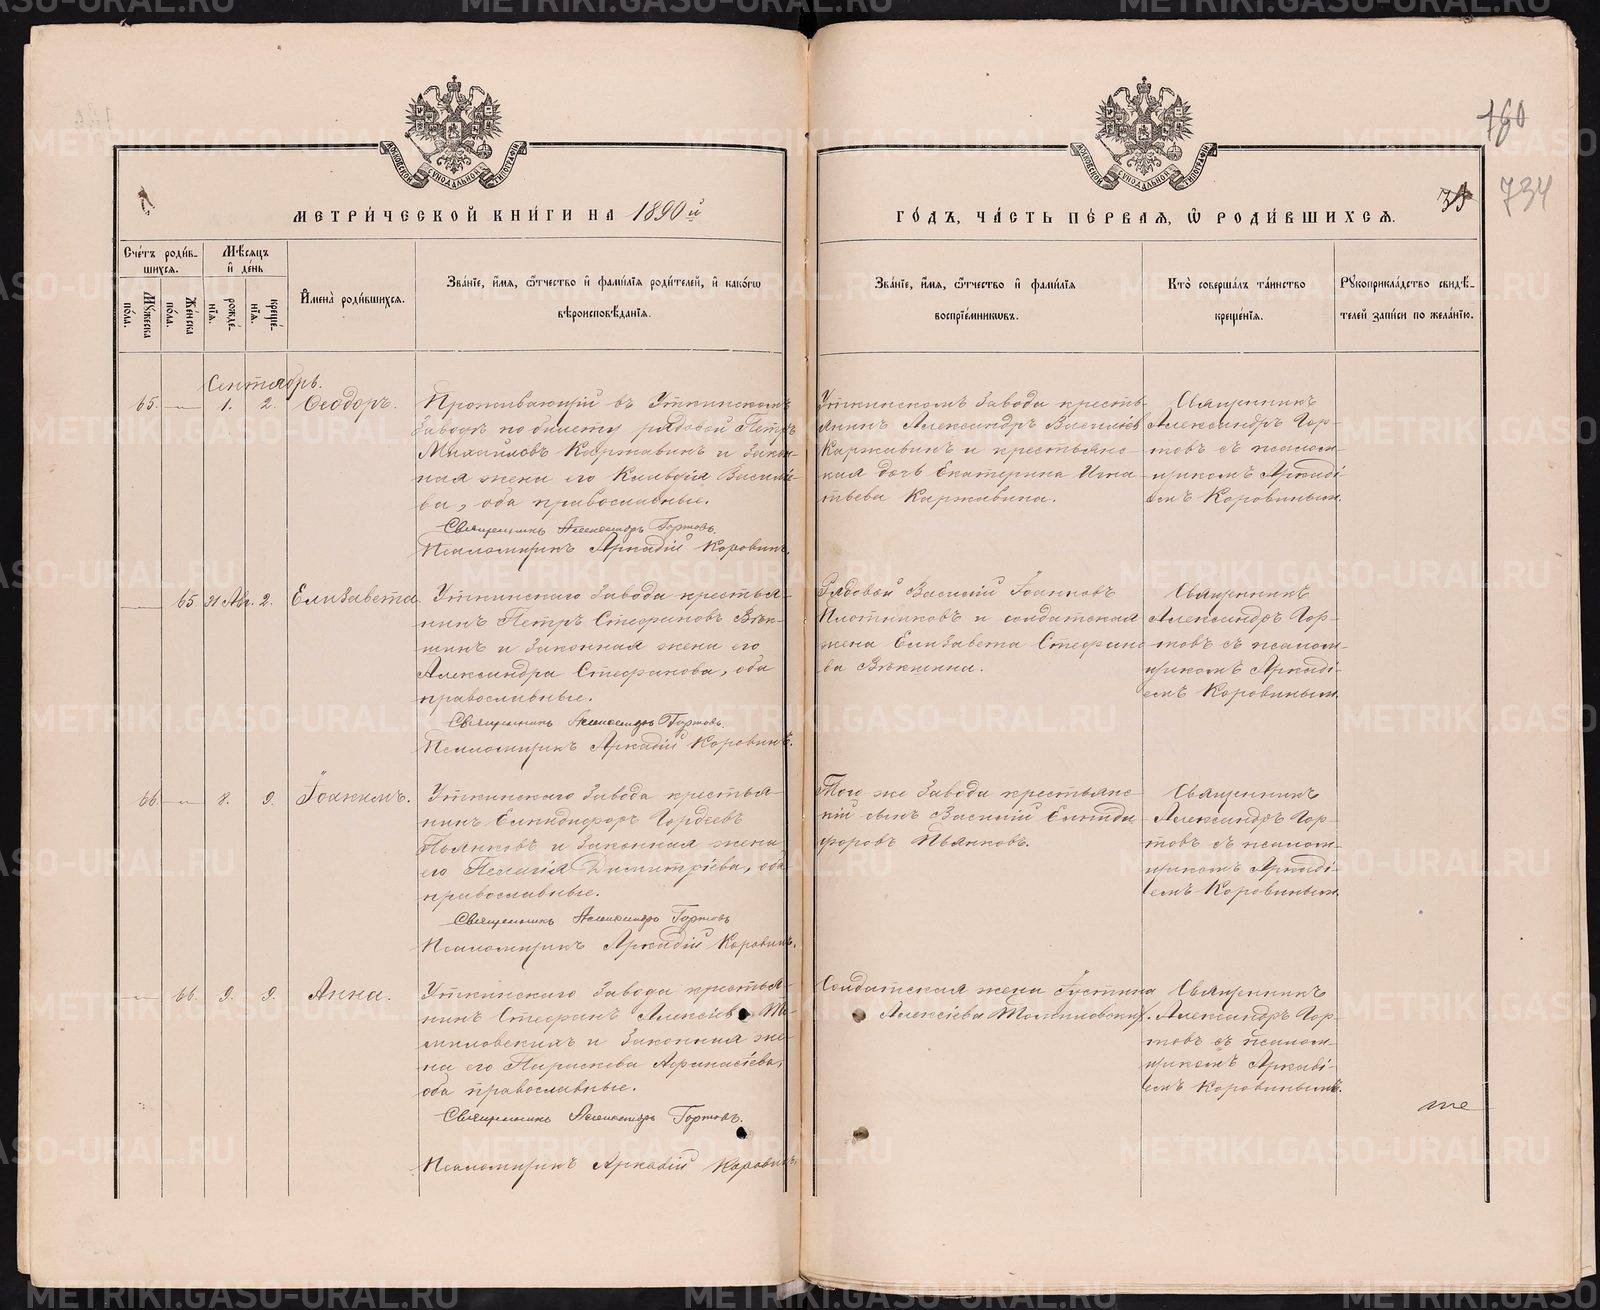 160
734
МЕТРИ́ЧЕСКОЙ КНИ́ГИ НА 1890 й
ГО́ДЪ, ЧА́СТЬ ПЕ́РВАЯ, Ѡ РОДИ́ВШИХСЯ.
МОСКОВСКОЙ СѴНОДАЛЬНОЙ ТИПОГРАФІИ
МОСКОВСКОЙ СѴНОДАЛЬНОЙ ТИПОГРАФІИ
Сче́тъ роди́вшихся.
Мꙋ́жеска по́ла.
Же́нска по́ла.
Мѣ́сяцъ и де́нь
рожде́нїя.
креще́нїя.
Имена̀ роди́вшихся.
Зва́нїе, и́мя, ѻ́тчество и фами́лїя роди́телей, и како́гѡ
вѣроисповѣ́данїя.
Зва́нїе, и́мя, ѻ́тчество и фами́лїя
воспрїе́мникѡвъ.
Кто̀ соверша́лъ та́инство
креще́нїя.
Рꙋкоприкла́дство свидѣ́-
телей за́писи по жела́нїю.
Сентябрь.
65. — 1. 2. Ѳеодоръ.
Проживающій въ Уткинскомъ
Заводѣ по билету рядовой Петръ
Михайловъ Каржавинъ и закон-
ная жена его Клавдія Василіе-
ва, оба православные.
Священникъ Александръ Гортовъ.
Псаломщикъ Аркадій Коровинъ.
Уткинскомъ Завода кресть-
янинъ Александръ Василіев
Каржавинъ и крестьянс-
кая дочь Екатерина Игна
тьева Каржавина.
Священникъ
Александръ Гор-
товъ съ псалом-
щикомъ Аркаді-
емъ Коровинымъ.
— 65 31 Авг. 2. Елизавета
Уткинскаго Завода крестья-
нинъ Петръ Стефановъ Вѣк-
шинъ и законная жена его
Александра Стефанова, оба
православные.
Священникъ Александръ Гортовъ.
Псаломщикъ Аркадій Коровинъ.
Рядовой Василій Іоанновъ
Плотниковъ и солдатская
жена Елизавета Стефано
ва Вѣкшина.
Священникъ
Александръ Гор-
товъ съ псалом-
щикомъ Аркаді-
емъ Коровинымъ.
66 — 8. 9. Іоакимъ.
Уткинскаго Завода крестья-
нинъ Елпидифоръ Гордеевъ
Пьянковъ и законная жена
его Пелагія Димитріева, оба
православные.
Священникъ Александръ Гортовъ
Псаломщикъ Аркадій Коровинъ.
Того же Завода крестьянс-
кій сынъ Василій Елпиди
форовъ Пьянковъ.
Священникъ
Александръ Гор-
товъ съ псалом-
щикомъ Аркаді-
емъ Коровинымъ.
— 66. 9. 9. Анна.
Уткинскаго Завода крестья-
нинъ Стефанъ Алексіевъ То-
миловскихъ и законная же-
на его Параскева Афанасіева,
оба православные.
Священникъ Александръ Гортовъ.
Псаломщикъ Аркадій Коровинъ.
Солдатская жена Іустина
Алексіева Томиловских.
Священникъ
Александръ Гор-
товъ съ псалом-
щикомъ Аркаді-
емъ Коровинымъ.
METRIKI.GASO-URAL.RU